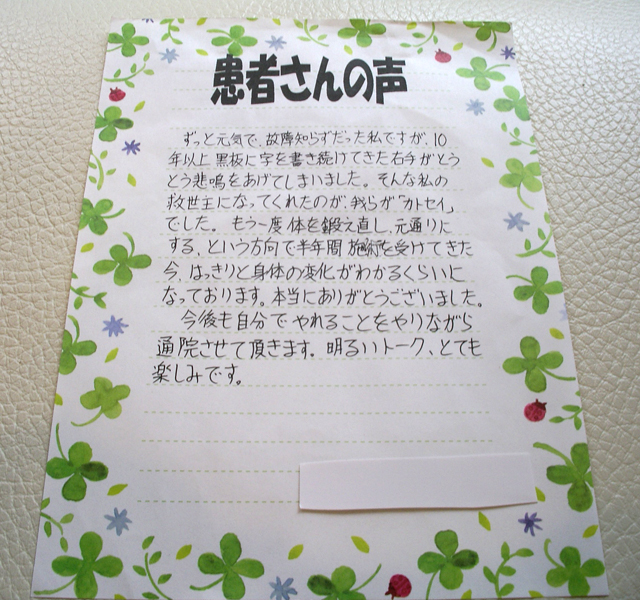 患者さんの声
ずっと元気で、故障知らずだった私ですが、10
年以上黒板に字を書き続けてきた右手がとう
とう悲鳴をあげてしまいました。そんな私の
救世主になってくれたのが、我らが「カトセイ」
でした。もう一度体を鍛え直し、元通りに
する、という方向で半年間施術を受けてきた
今、はっきりと身体の変化がわかるくらいに
なっております。本当にありがとうございました。
今後も自分でやれることをやりながら
通院させて頂きます。明るいトーク、とても
楽しみです。